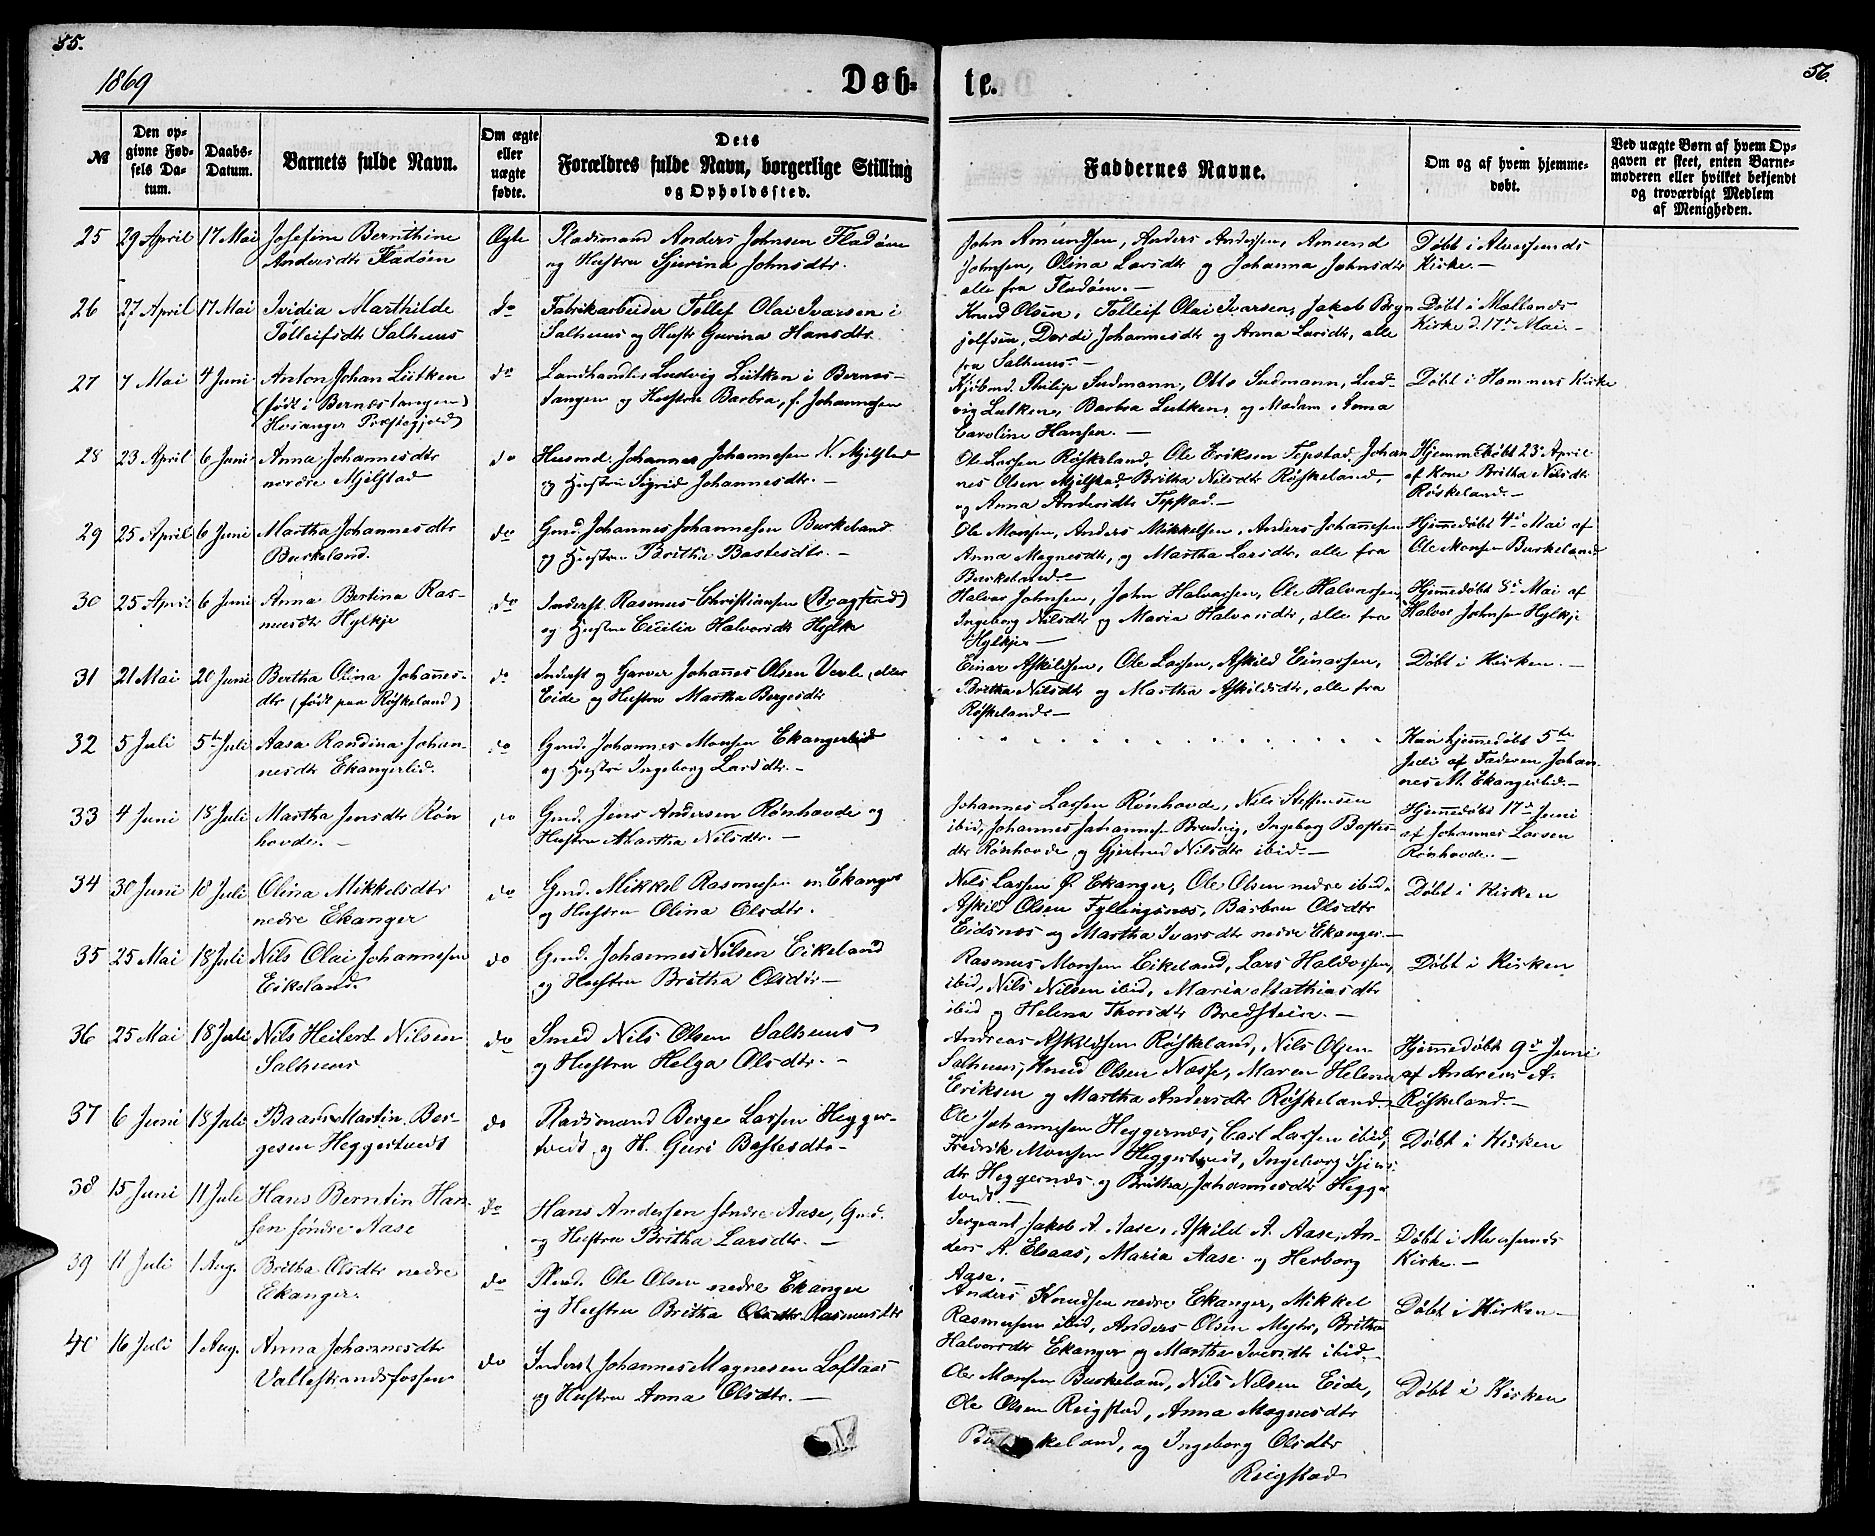 55.
56.
1869
Døb=
te.
№
Den op=
givne Fød=
sels Da=
tum.
Daabs=
Datum.
Barnets fulde Navn.
Om ægte
eller
uægte
fødte.
Dets
Forældres fulde Navn, borgerlige Stilling
og Opholdssted.
Faddernes Navne.
Om og af hvem hjemme=
døbt.
Ved uægte Børn af hvem Op=
gaven er skeet, enten Barne=
moderen eller hvilket bekjendt
og troværdigt Medlem
af Menigheden.
25 29 April 17 Mai Josefine Bernthine
Andersdtr Fladøen
Ægte
Pladsmand Anders Johnsen Fladøen
og Hustru Sjurina Johnsdtr.
John Amundsen, Anders Andersen, Amund
Johnsen, Olina Larsdtr og Johanna Johnsdtr
alle fra Fladøen. —
Døbt i Alversunds
Kirke. —
26 27 April 17 Mai Ividia Marthilde
Tølleifsdtr Salhuus
do
Fabrikarbeider Tøllef Olai Ivarsen i
Salhuus og Hustr Gurina Hansdtr.
Knud Olsen, Tølleif Olai Ivarsen, Jakob Bryn
jolfsen, Dordi Johannesdtr og Anna Larsdtr, alle
fra Salhuus. —
Døbt i Mællands
Kirke d. 17de Mai. —
27 7 Mai 4 Juni Anton Johan Lütken
(født i Bernestangen
Hosanger Præstegjeld)
do
Landhandler Ludvig Lütken i Bernes-
tangen og Hustru Barbra, f. Johannesen
Kjøbmd. Philip Sudmann, Otto Sudmann, Lud-
vig Lutken, Barbra Lutken, og Madam Anna
Caroline Hansen. —
Døbt i Hammers Kirke
28 23 April 6 Juni Anna Johannesdtr
nordre Mjelstad
do
Husmd. Johannes Johannesen N. Mjelstad
og Hustru Sigrid Johannesdtr. —
Ole Larsen Røskeland, Ole Eriksen Tepstad, Johan
nes Olsen Mjelstad, Britha Nilsdtr Røskeland,
og Anna Andersdtr Tepstad. —
Hjemmedøbt 23 April
af Kone Britha Nilsdtr
Røskeland. —
29 25 April 6 Juni Martha Johannesdtr
Burkeland.
do
Gmd. Johannes Johannesen Burkeland
og Hustru Britha Bastesdtr. —
Ole Monsen, Anders Mikkelsen, Anders Johannesen
Anna Magnesdtr, og Martha Larsdtr, alle fra
Burkeland. —
Hjemmedøbt 4de Mai af
Ole Monsen Burkeland
30 25 April 6 Juni Anna Bertina Ras-
musdtr Hylkje
do
Inderst Rasmus Christiansen (Bragstad)
og Hustru Cecilia Halvorsdtr Hylkje
Halvor Johnsen, John Halvorsen, Ole Halvorsen
Ingeborg Nilsdtr og Maria Halvorsdtr, alle fra
Hylkje. —
Hjemmedøbt 8de Mai af
Halvor Johnsen Hylkje
31 21 Mai 20 Juni Bertha Olina Johannes-
dtr (født paa Røskeland)
do
Inderst og Garver Johannes Olsen Vevle, eller
Eide og Hustru Martha Bergesdtr
Einar Askildsen, Ole Larsen, Askild Einarsen,
Britha Nilsdtr og Martha Askildsdtr, alle fra
Røskeland. —
Døbt i Kirken. —
32 5 Juli 5te Juli Aasa Randina Johan-
nesdtr Ekangerlid.
do
Gmd. Johannes Monsen Ekangerlid
og Hustru Ingeborg Larsdtr. —
Kun hjemmedøbt 5te
Juli af Faderen Johan-
nes M. Ekangerlid. —
33 4 Juni 18 Juli Martha Jensdtr Røn
hovde. —
do
Gmd. Jens Andersen Rønhovde og
Hustru Martha Nilsdtr. —
Johannes Larsen Rønhovde, Nils Steffensen
ibid, Johannes Johannesen Bredvig, Ingeborg Bastes-
dtr Rønhovde og Gjertrud Nilsdtr ibid. —
Hjemmedøbt 17de Juni
af Johannes Larsen
Rønhovde. —
34 30 Juni 18 Juli Olina Mikkelsdtr
nedre Ekanger
do
Gmd. Mikkel Rasmusen n. Ekanger
og Hustru Olina Olsdtr.
Nils Larsen Ø. Ekanger, Ole Olsen nedre ibid.
Askild Olsen Fyllingsnes, Barbru Olsdtr
Eidsnes og Martha Ivarsdtr nedre Ekanger. —
Døbt i Kirken
35 25 Mai 18 Juli Nils Olai Johannesen
Eikeland.
do
Gmd. Johannes Nilsen Eikeland
og Hustru Britha Olsdtr —
Rasmus Monsen Eikeland, Lars Haldorsen,
ibid, Nils Nilsen ibid, Maria Mathiasdtr
ibid og Helena Thorsdtr Bredstein. —
Døbt i Kirken
36 25 Mai 18 Juli Nils Heilert Nilsen
Salhuus
do
Smed Nils Olsen Salhuus
og Hustru Helga Olsdtr. —
Andreas Askildsen Røskeland, Nils Olsen
Salhuus, Knud Olsen Nesse, Maren Helena
Eriksen og Martha Andersdtr Røskeland. —
Hjemmedøbt 9de Juni
af Andreas A.
Røskeland. —
37 6 Juni 18 Juli Baard Martin Ber-
gesen Heggertvedt
do
Pladsmand Berge Larsen Hegger-
tveit og H. Guri Bastesdtr —
Ole Johannesen Heggernes, Carl Larsen ibid,
Fredrik Monsen Heggertveit, Ingeborg
dtr Heggernes og Britha Johannesdtr Hegge
tvedt. —
Døbt i Kirken
38 15 Juni 11 Juli Hans Berntin Han-
sen søndre Aase
do
Hans Andersen søndre Aase, Gmd.
og Hustru Britha Larsdtr. —
Sergeant Jakob A. Aase, Askild A. Aase, An-
ders A. Elsaas, Maria Aase og Herborg
Aase.
Døbt i Alversunds
Kirke. —
39 11 Juli 1 Aug. Britha Olsdtr nedre
Ekanger.
do
Ole Olsen nedre Ekanger
og Hustru Britha Olsdtr Rasmusdtr
Anders Knudsen nedre Ekanger, Mikkel
Rasmusen ibid, Anders Olsen Myhr, Britha
Halvorsdtr Ekanger og Martha Iversdtr ibid. —
Døbt i Kirken —
40 16 Juli 1 Aug. Anna Johannesdtr
Vallestrandsfossen
do
Inderst Johannes Magnesen Loftaas
og Hustru Anna Olsdtr. —
Ole Monsen Burkeland, Nils Nilsen Eide,
Ole Olsen Reigstad, Anna Magnesdtr
Burkeland, og Ingeborg Olsdtr
Reigstad
Døbt i Kirken